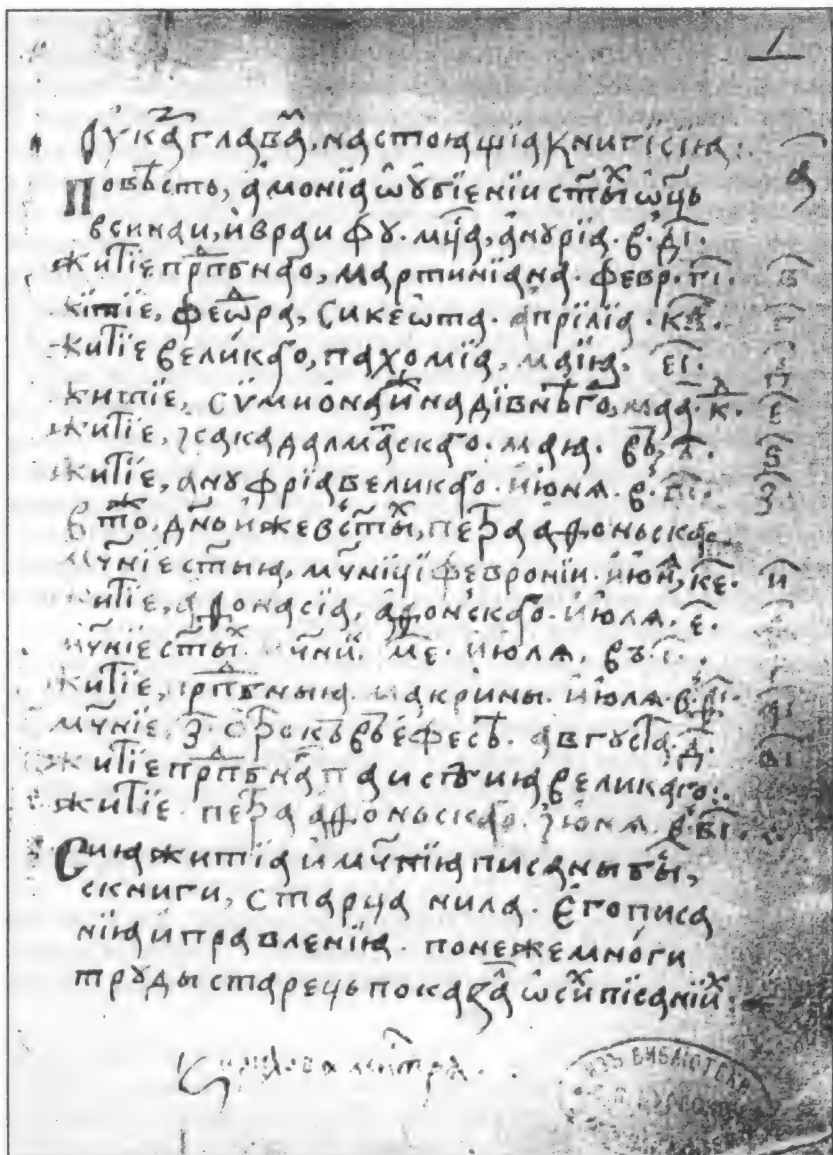 1
Ѹказ главам, настоѧщїѧ книги сїѧ:
Повѣсть, амонїѧ ѡ ѹбїенїи ст҃ых ѡц҃ь
в синаи, и в раифу. мц҃а, анѹрїа. в. д҃і.
житїе прпⷣбнаго, мартинїана. февр. г҃і.
житїе, феѡдра, сикеѡта. апрїлїа. к҃в.
житїе великаго, пахомїа, маїѧ, е҃і.
житїе, сѵмиона иже на дивнѣй горѣ, маа. к҃д.
житїе, исака далматскаго. маѧ. въ, л҃.
житїе, анѹфрїа великаго. июнѧ. в. в҃і.
в тоⷤ. дн҃ь иже въ ст҃ых, петра афоньскаг
мч҃нїе ст҃ыѧ, мч҃нїци февронїи. июн, к҃е. и
житїе, афонасїа, афонскаго. июлѧ. е҃.
мч҃нїе ст҃ых мч҃ник. м҃е. июлѧ, въ. і҃.
житїе, прпⷣбныѧ макрины. июлѧ. в. ѳ҃і. а҃і
мч҃нїе, з҃. отрокъ въ ефесѣ. августа. д҃. в҃і
житїе прпⷣбнаг паисѣѧ великаго:
житїе петра афоньскаго. июнѧ. в. в҃і.
Сиѧ житїа и мч҃нїѧ писаны быс,
с книги, старца нила. его писа
нїѧ и правленїѧ. понеже многи
трѹды старець показал ѡ сих писанїих
Кирилова мнтрѧ.
ИЗЪ БИБЛІОТЕКИ